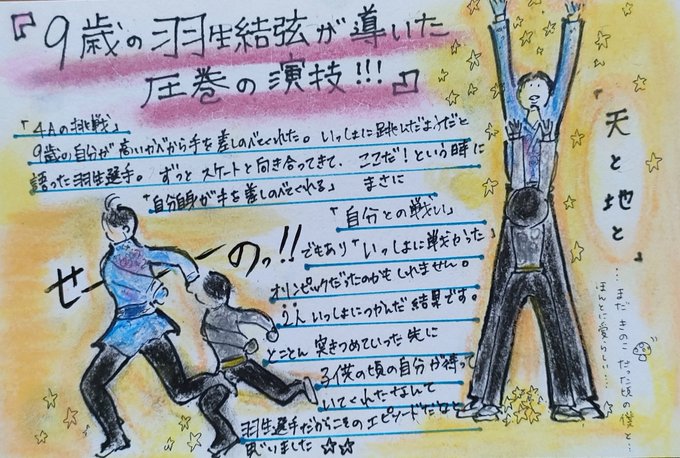 『9歳の羽生結弦が導いた
圧巻の演技!!!』
「4Aの挑戦」
9歳の自分が高いかべから手を差しのべてくれた。いっしょに跳んだようだと
語った羽生選手。ずっとスケートと向き合ってきて、ここだ!という時に
「自分自身が手を差しのべてくれる」まさに
「自分との戦い」
でもあり「いっしょに戦かった」
オリンピックだったのかもしれません。
2人いっしょにつかんだ結果です。
とことん突きつめていった先に
子供の頃の自分が待って
いてくれたなんて
羽生選手だからこそのエピソードだなと
思いました☆☆
せーーーのっ!!
「天と地と」
…まだきのこだった頃の僕と…
ほんとに愛らしく…